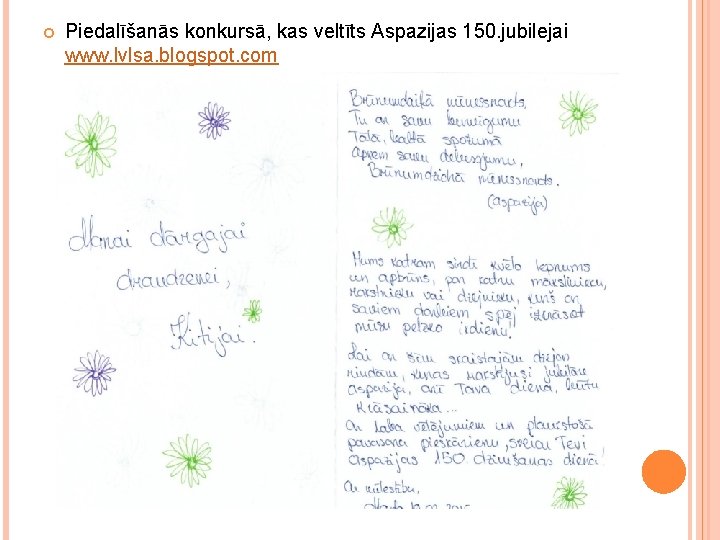 Piedalīšanās konkursā, kas veltīts Aspazijas 150. jubilejai
www. lvlsa. blogspot. com
Manai dārgajai
draudzenei,
Kitijai.
Brīnumdaiļā mēnessnakts,
Tu ar savu burvīgumu
Tālā, baltā spožumā
Apņem savu debesjumu,
Brīnumdaiļā mēnessnakts.
(Aspazija)
Mums katram sirdī kvēlo lepnums
un apbrīns, par katru mākslinieku,
rakstnieku vai dzejnieku, kurš ar
saviem darbiem spēj izkrāsot
mūsu pelēko ikdienu.
Lai ar šīm skaistajām dzejas
rindām, kuras rakstījusi jubilāre
Aspazija, arī Tava diena, būtu
krāsaināka...
Ar laba vēlējumiem un plaukstošā
pavasara pieskārienu, sveicu Tevi
Aspazijas 150 dzimšanas dienā!
Ar mīlestību,